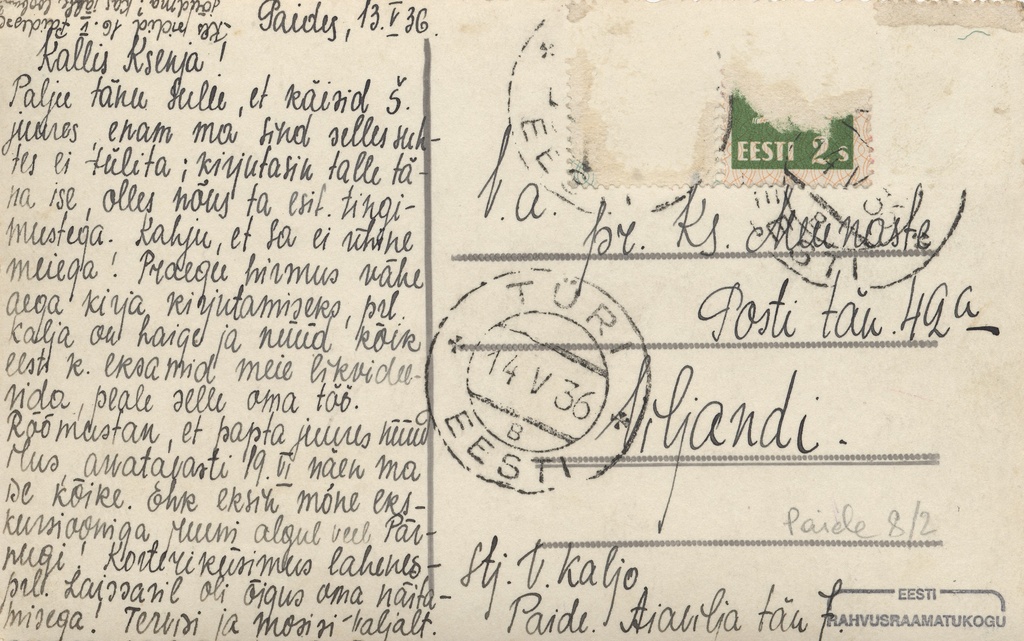 Paides, 13. V 36.
Kallis Ksenja!
Palju tänu sulle, et käisid Š.
juures, enam ma sind selles suh-
tes ei tülita; kirjutasin talle tä-
na ise, olles nõus ta esit. tingi-
mustega. Kahju, et sa ei ühine
meiega! Praegu hirmus vähe
aega kirja kirjutamiseks, prl.
Kalja on haige ja nüüd kõik
eesti k. eksamid meie likvidee-
rida, peale selle oma töö.
Rõõmustan, et papta juures
arvatavasti 19. VI näen ma
se kõike. Ehk eksin mõne eks-
kursiooniga juuni algul veel Pär-
nugi! Korteriküsimus lahenes-
prl. oli õigus oma näita-
misega! Tervisi ja mosisi Valjalt.
EESTI 2 S
EESTI
EESTI
V. a.
pr. Ks. Muunaste
Posti tän. 42a
Viljandi.
TÜRI
14 V 36
B
EESTI
Paide 8/2
Stj. V. Kaljo
Paide. Aiavilja tän 7
EESTI
RAHVUSRAAMATUKOGU